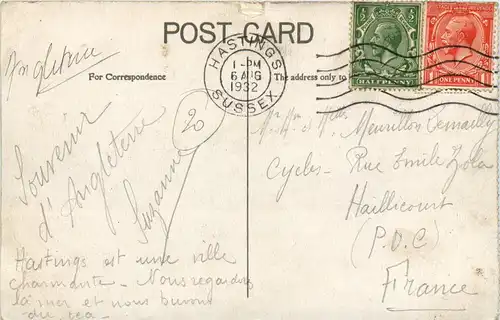 POST CARD
Angleterre
For Correspondence
The address only to
HASTINGS
1 - PM
6 AUG
1932
SUSSEX
HALFPENNY
ONE PENNY
20
Souvenir
d'Angleterre
Suzanne
Hastings est une ville
charmante - Nous regardons
la mer et nous buvons
du tea -
Mr Mme et Melle Meurillon
Cycles - Rue Emile Zola
Haillicourt
(P.D.C)
France